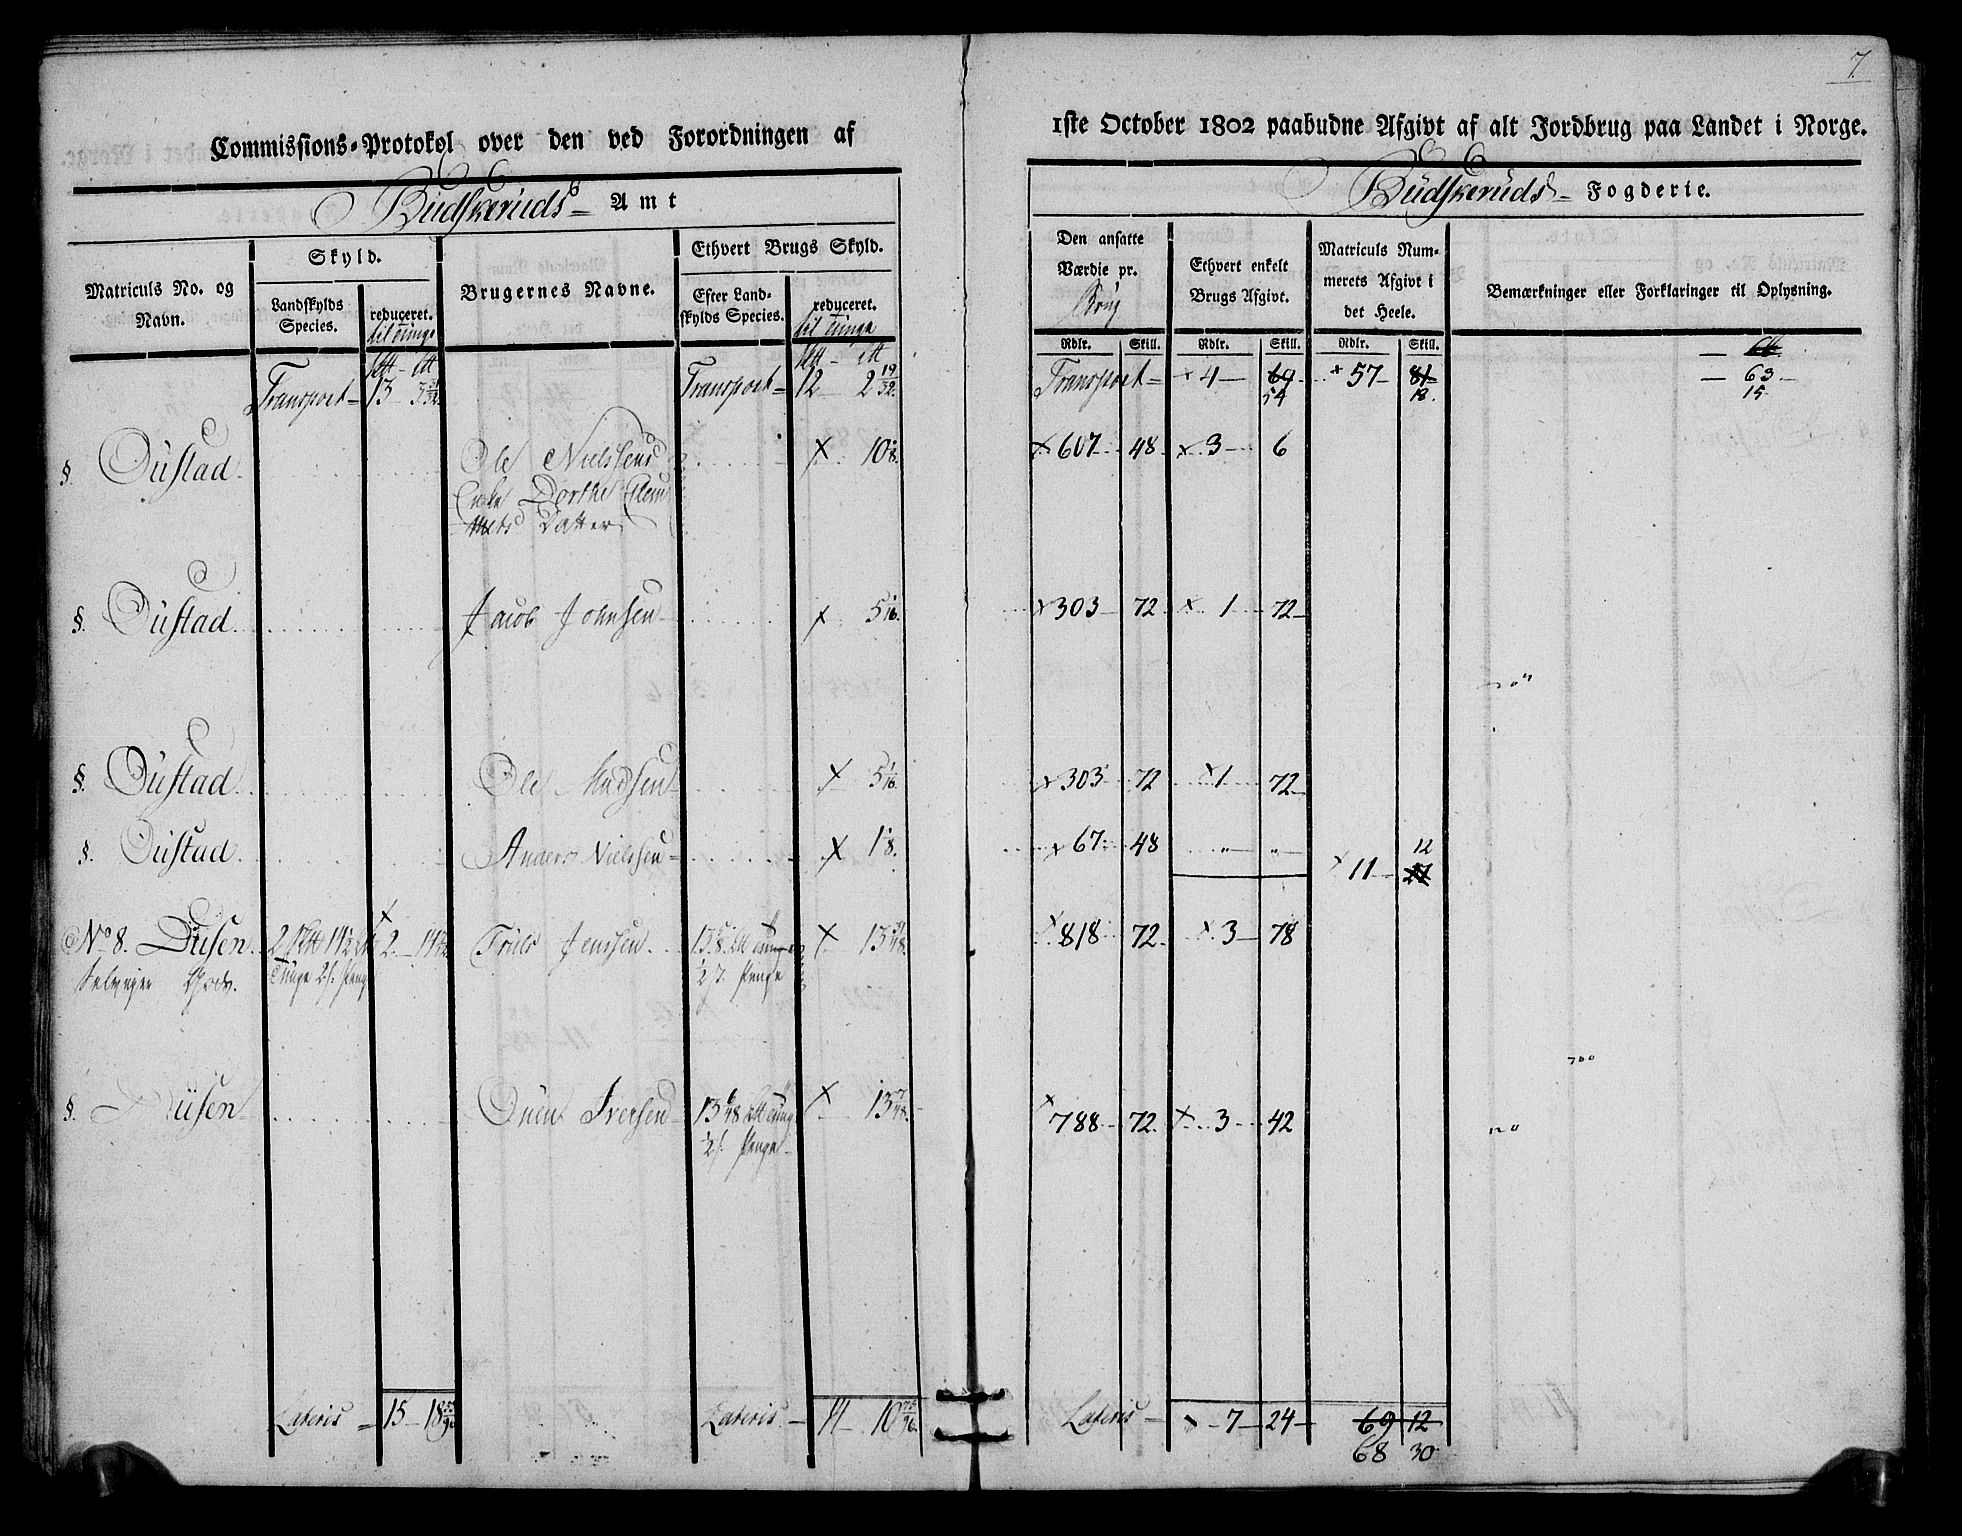 7.
Commissions-Protokol over den ved Forordningen af
1ste October 1802 paabudne Afgivt af alt Jordbrug paa Landet i Norge.
Budskeruds Amt
Budskeruds Fogderie.
Matriculs No. og Navn.
Skyld.
Landskylds Species.
reduceret.
til tunge
Brugernes Navne.
Ethvert Brugs Skyld.
Efter Landskylds Species.
reduceret.
til tunge
Den ansatte Værdie pr. Brug
Ethvert enkelt Brugs Afgivt.
Matriculs Nummerets Afgivt i det Heele.
Bemærkninger eller Forklaringer til Oplysning.
Rdlr. Skill. Rdlr. Skill. Rdlr. Skill.
Transport 13 3 Transport 12 2 19/32 Transport 4 69 57 81 63
54 18. 15
§. Oustad Ole Nielsens × 10 1/8. × 607 48 × 3 6
Enke Dorthe
Datter
§. Oustad Jacob Johnsen × 5 1/16. × 303 72 × 1 72
§. Oustad Ole Madsen × 5 1/16 × 303 72 × 1 72
§. Oustad Anders Nielsen × 1 1/8. × 67 48 " " × 11 12
No 8. × 2 14 1/2 Truls Jensen × 13 × 818 72 × 3 78
2 s. Penge
§. Iversen × 13 7/48 × 788 72 × 3 42
1/2 s. Penge
Lateris 15 18 Lateris 14 10 75/96 Lateris 7 24 69 12
68 30